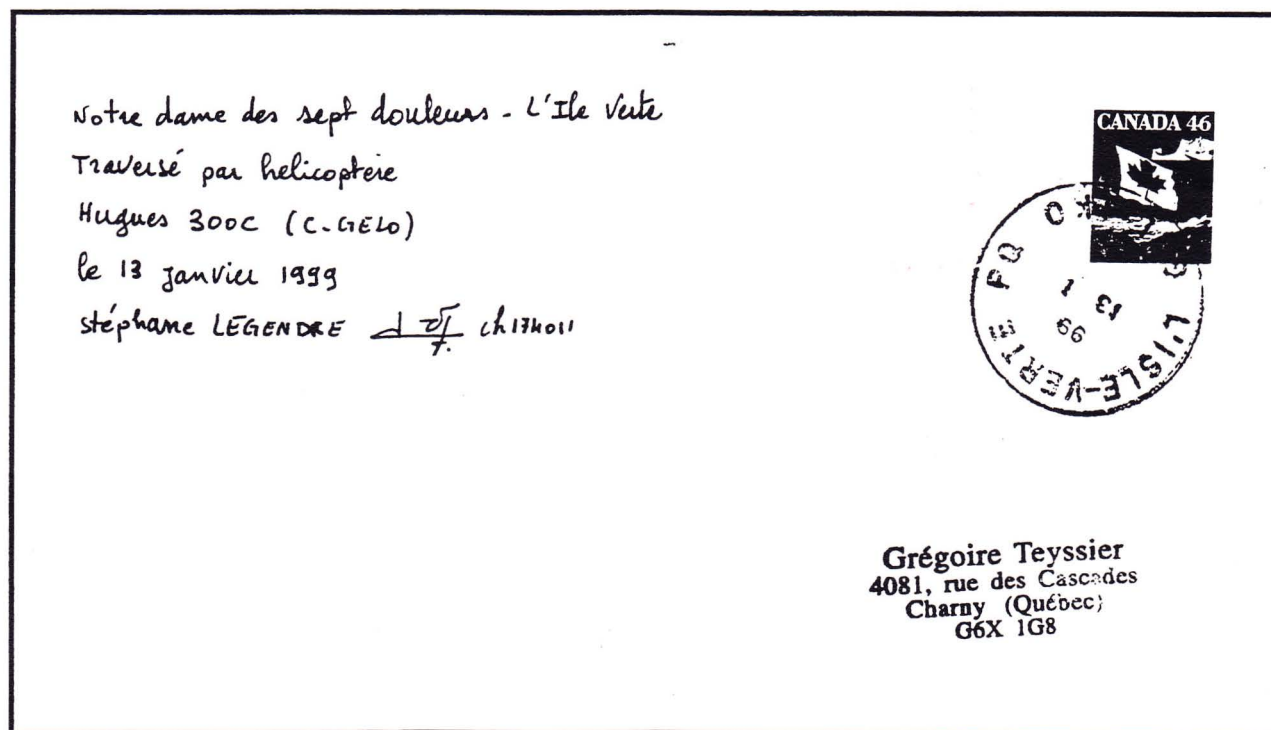 Notre dame des sept douleurs - L'Ile Verte
Traversé par helicoptère
Hugues 300C (C-GELO)
le 13 Janvier 1999
stéphane LEGENDRE ch174011
CANADA 46
L'ISLE-VERTE PQ
13 1
99
Grégoire Teyssier
4081, rue des Cascades
Charny (Québec)
G6X 1G8